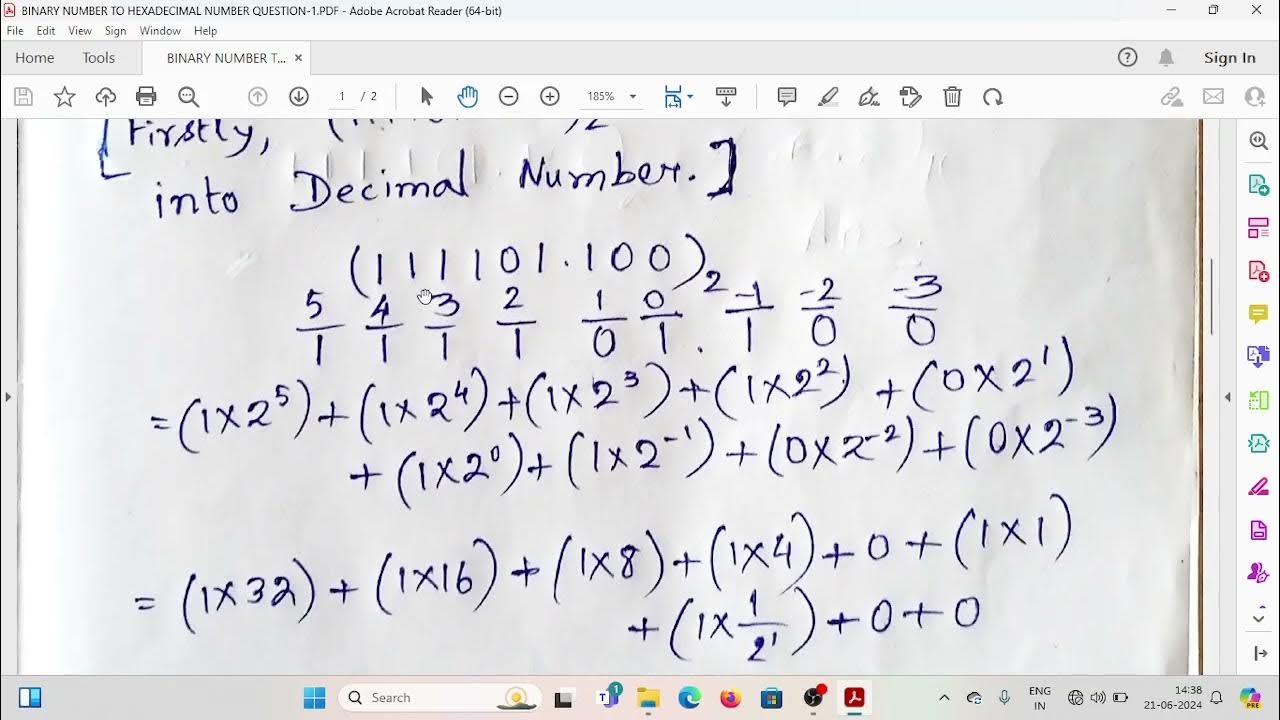 BINARY NUMBER TO HEXADECIMAL NUMBER QUESTION-1.PDF - Adobe Acrobat Reader (64-bit)
File Edit View Sign Window Help
Home Tools BINARY NUMBER T... × Sign In
1 / 2 185%
[Firstly,
into Decimal Number.]
(111101.100)₂
5 4 3 2 1 0 -1 -2 -3
1 1 1 1 0 1 . 1 0 0
= (1×2⁵) + (1×2⁴) + (1×2³) + (1×2²) + (0×2¹)
+ (1×2⁰) + (1×2⁻¹) + (0×2⁻²) + (0×2⁻³)
= (1×32) + (1×16) + (1×8) + (1×4) + 0 + (1×1)
+ (1×1/2¹) + 0 + 0
Search 1 ENG 14:38
IN 21-06-2024 PRE